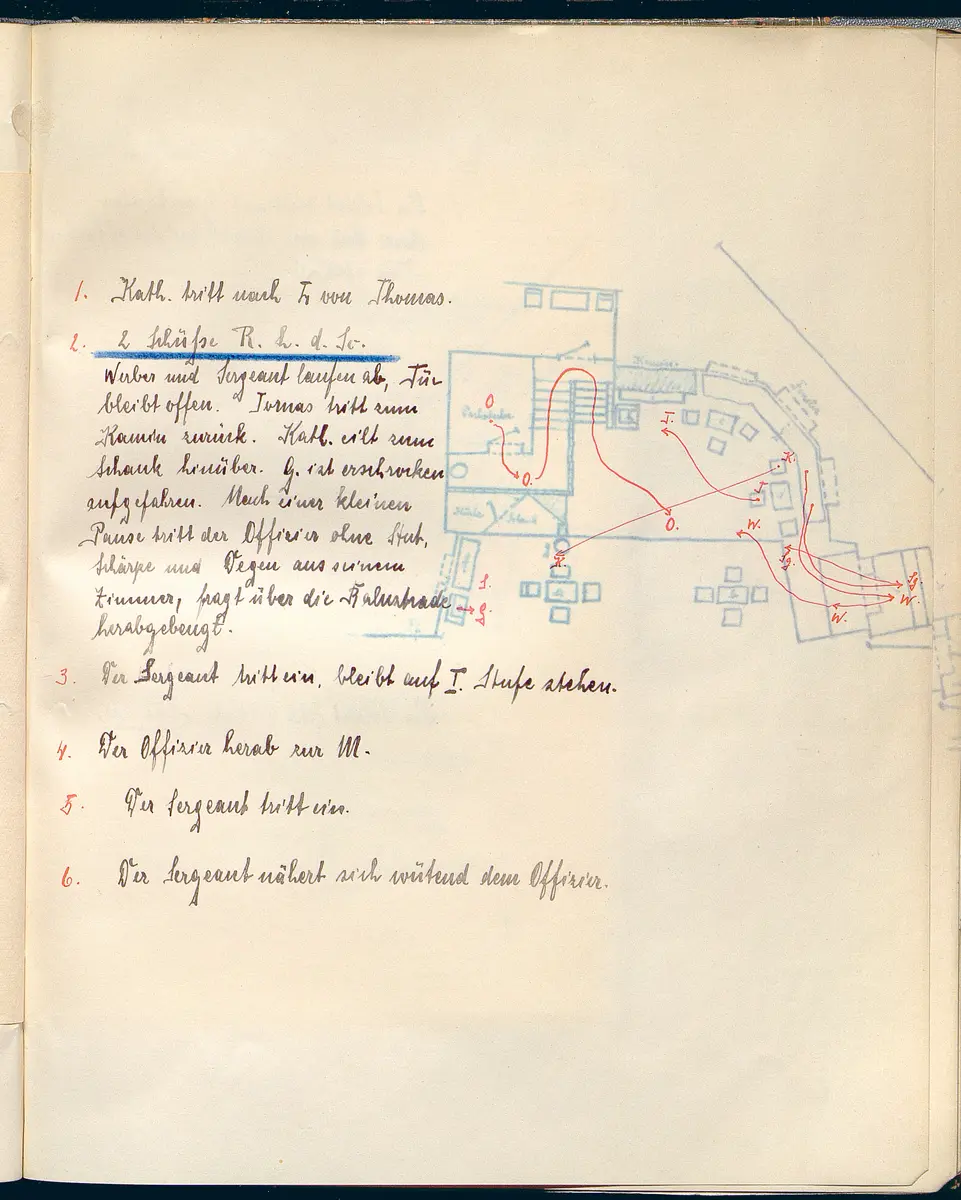 1. Kath. tritt nach L von Thomas.
2. 2 Schüsse R. h. d. Sc.
Werber und Sergeant laufen ab, Tür
bleibt offen. Tomas tritt zum
Kamin zurück. Kath. eilt zum
Schank hinüber. G. ist erschrocken
aufgefahren. Nach einer kleinen
Pause tritt der Offizier ohne Hut,
Schärpe und Degen aus seinem
Zimmer, fragt über die Balustrade
herabgebeugt.
3. Der Sergeant tritt ein, bleibt auf I. Stufe stehen.
4. Der Offizier herab zur M.
5. Der Sergeant tritt ein.
6. Der Sergeant nähert sich wütend dem Offizier.
Kamin
O
T.
K.
O.
T.
O.
W.
Sg.
K.
Sg.
W.
W.